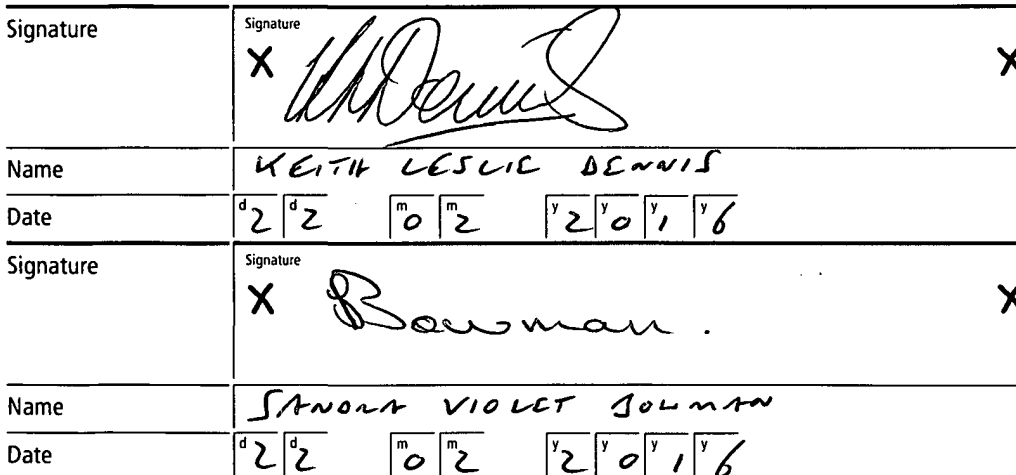 Signature
Signature
X KLDennis X
Name KEITH LESLIE DENNIS
Date d2 d2 m0 m2 y2 y0 y1 y6
Signature
Signature
X SBowman. X
Name SANDRA VIOLET BOWMAN
Date d2 d2 m0 m2 y2 y0 y1 y6